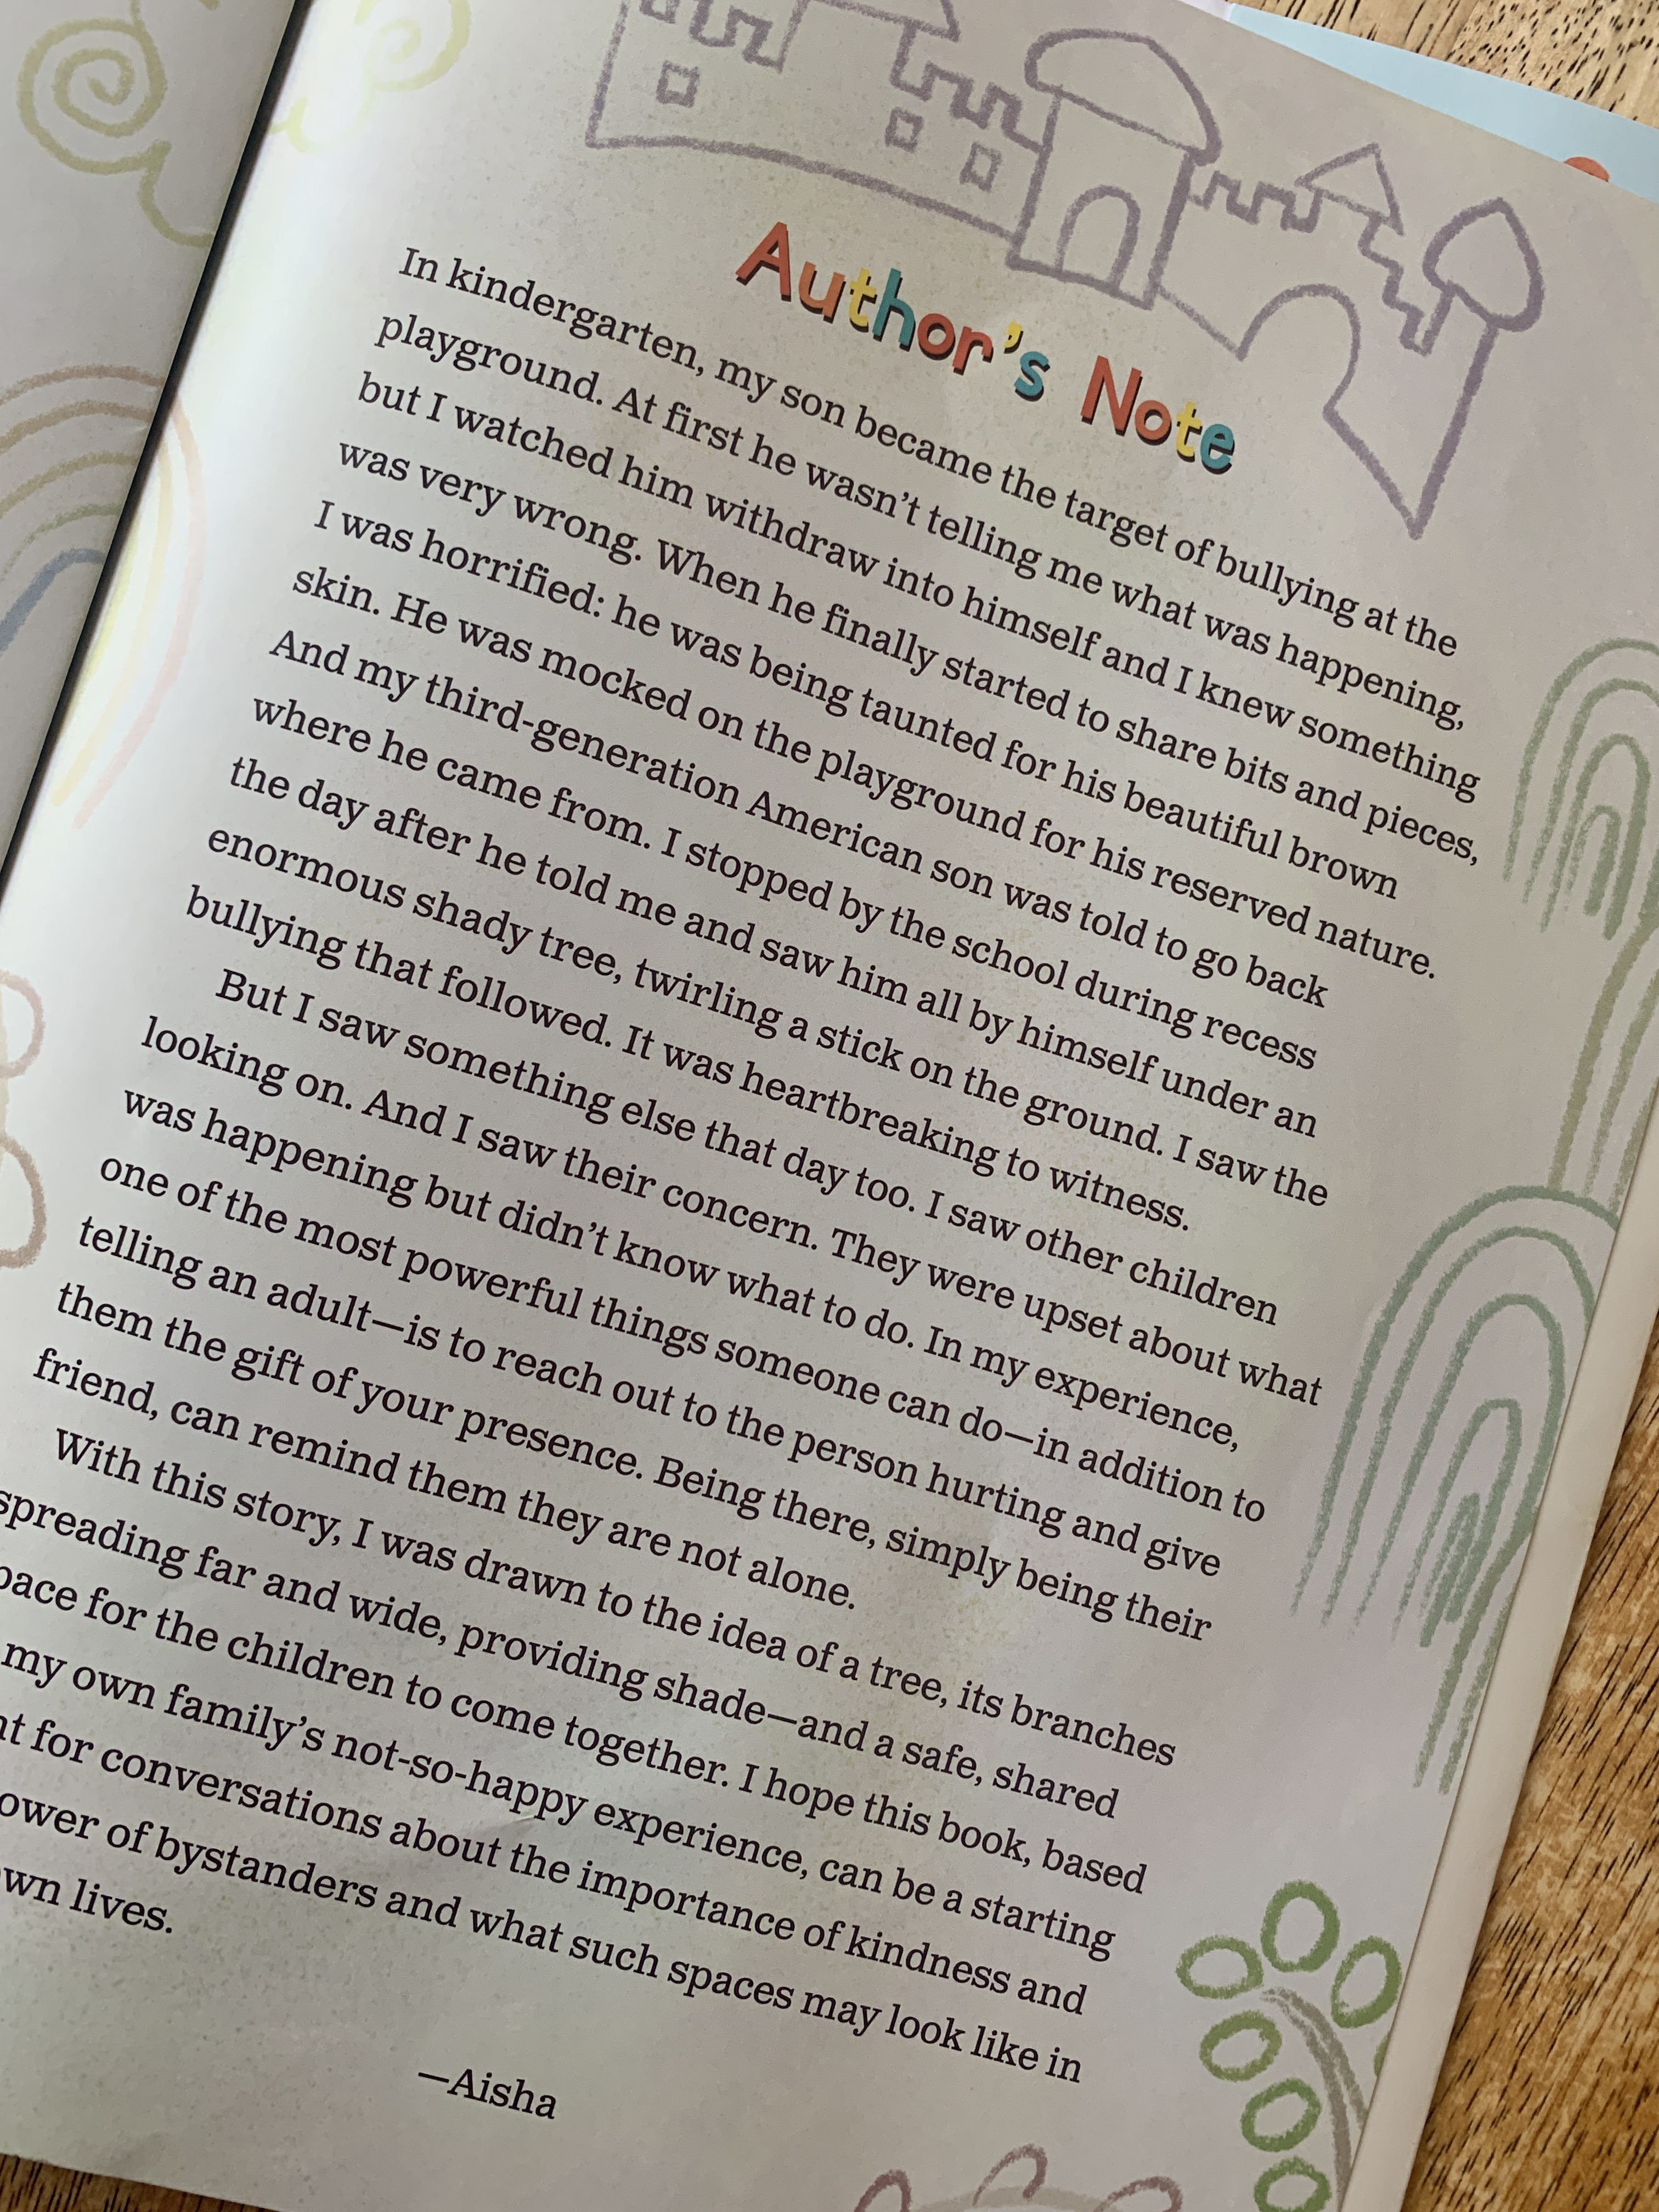 Author's Note
In kindergarten, my son became the target of bullying at the
playground. At first he wasn't telling me what was happening,
but I watched him withdraw into himself and I knew something
was very wrong. When he finally started to share bits and pieces,
I was horrified: he was being taunted for his beautiful brown
skin. He was mocked on the playground for his reserved nature.
And my third-generation American son was told to go back
where he came from. I stopped by the school during recess
the day after he told me and saw him all by himself under an
enormous shady tree, twirling a stick on the ground. I saw the
bullying that followed. It was heartbreaking to witness.
But I saw something else that day too. I saw other children
looking on. And I saw their concern. They were upset about what
was happening but didn't know what to do. In my experience,
one of the most powerful things someone can do—in addition to
telling an adult—is to reach out to the person hurting and give
them the gift of your presence. Being there, simply being their
friend, can remind them they are not alone.
With this story, I was drawn to the idea of a tree, its branches
spreading far and wide, providing shade—and a safe, shared
pace for the children to come together. I hope this book, based
my own family's not-so-happy experience, can be a starting
nt for conversations about the importance of kindness and
ower of bystanders and what such spaces may look like in
wn lives.
—Aisha